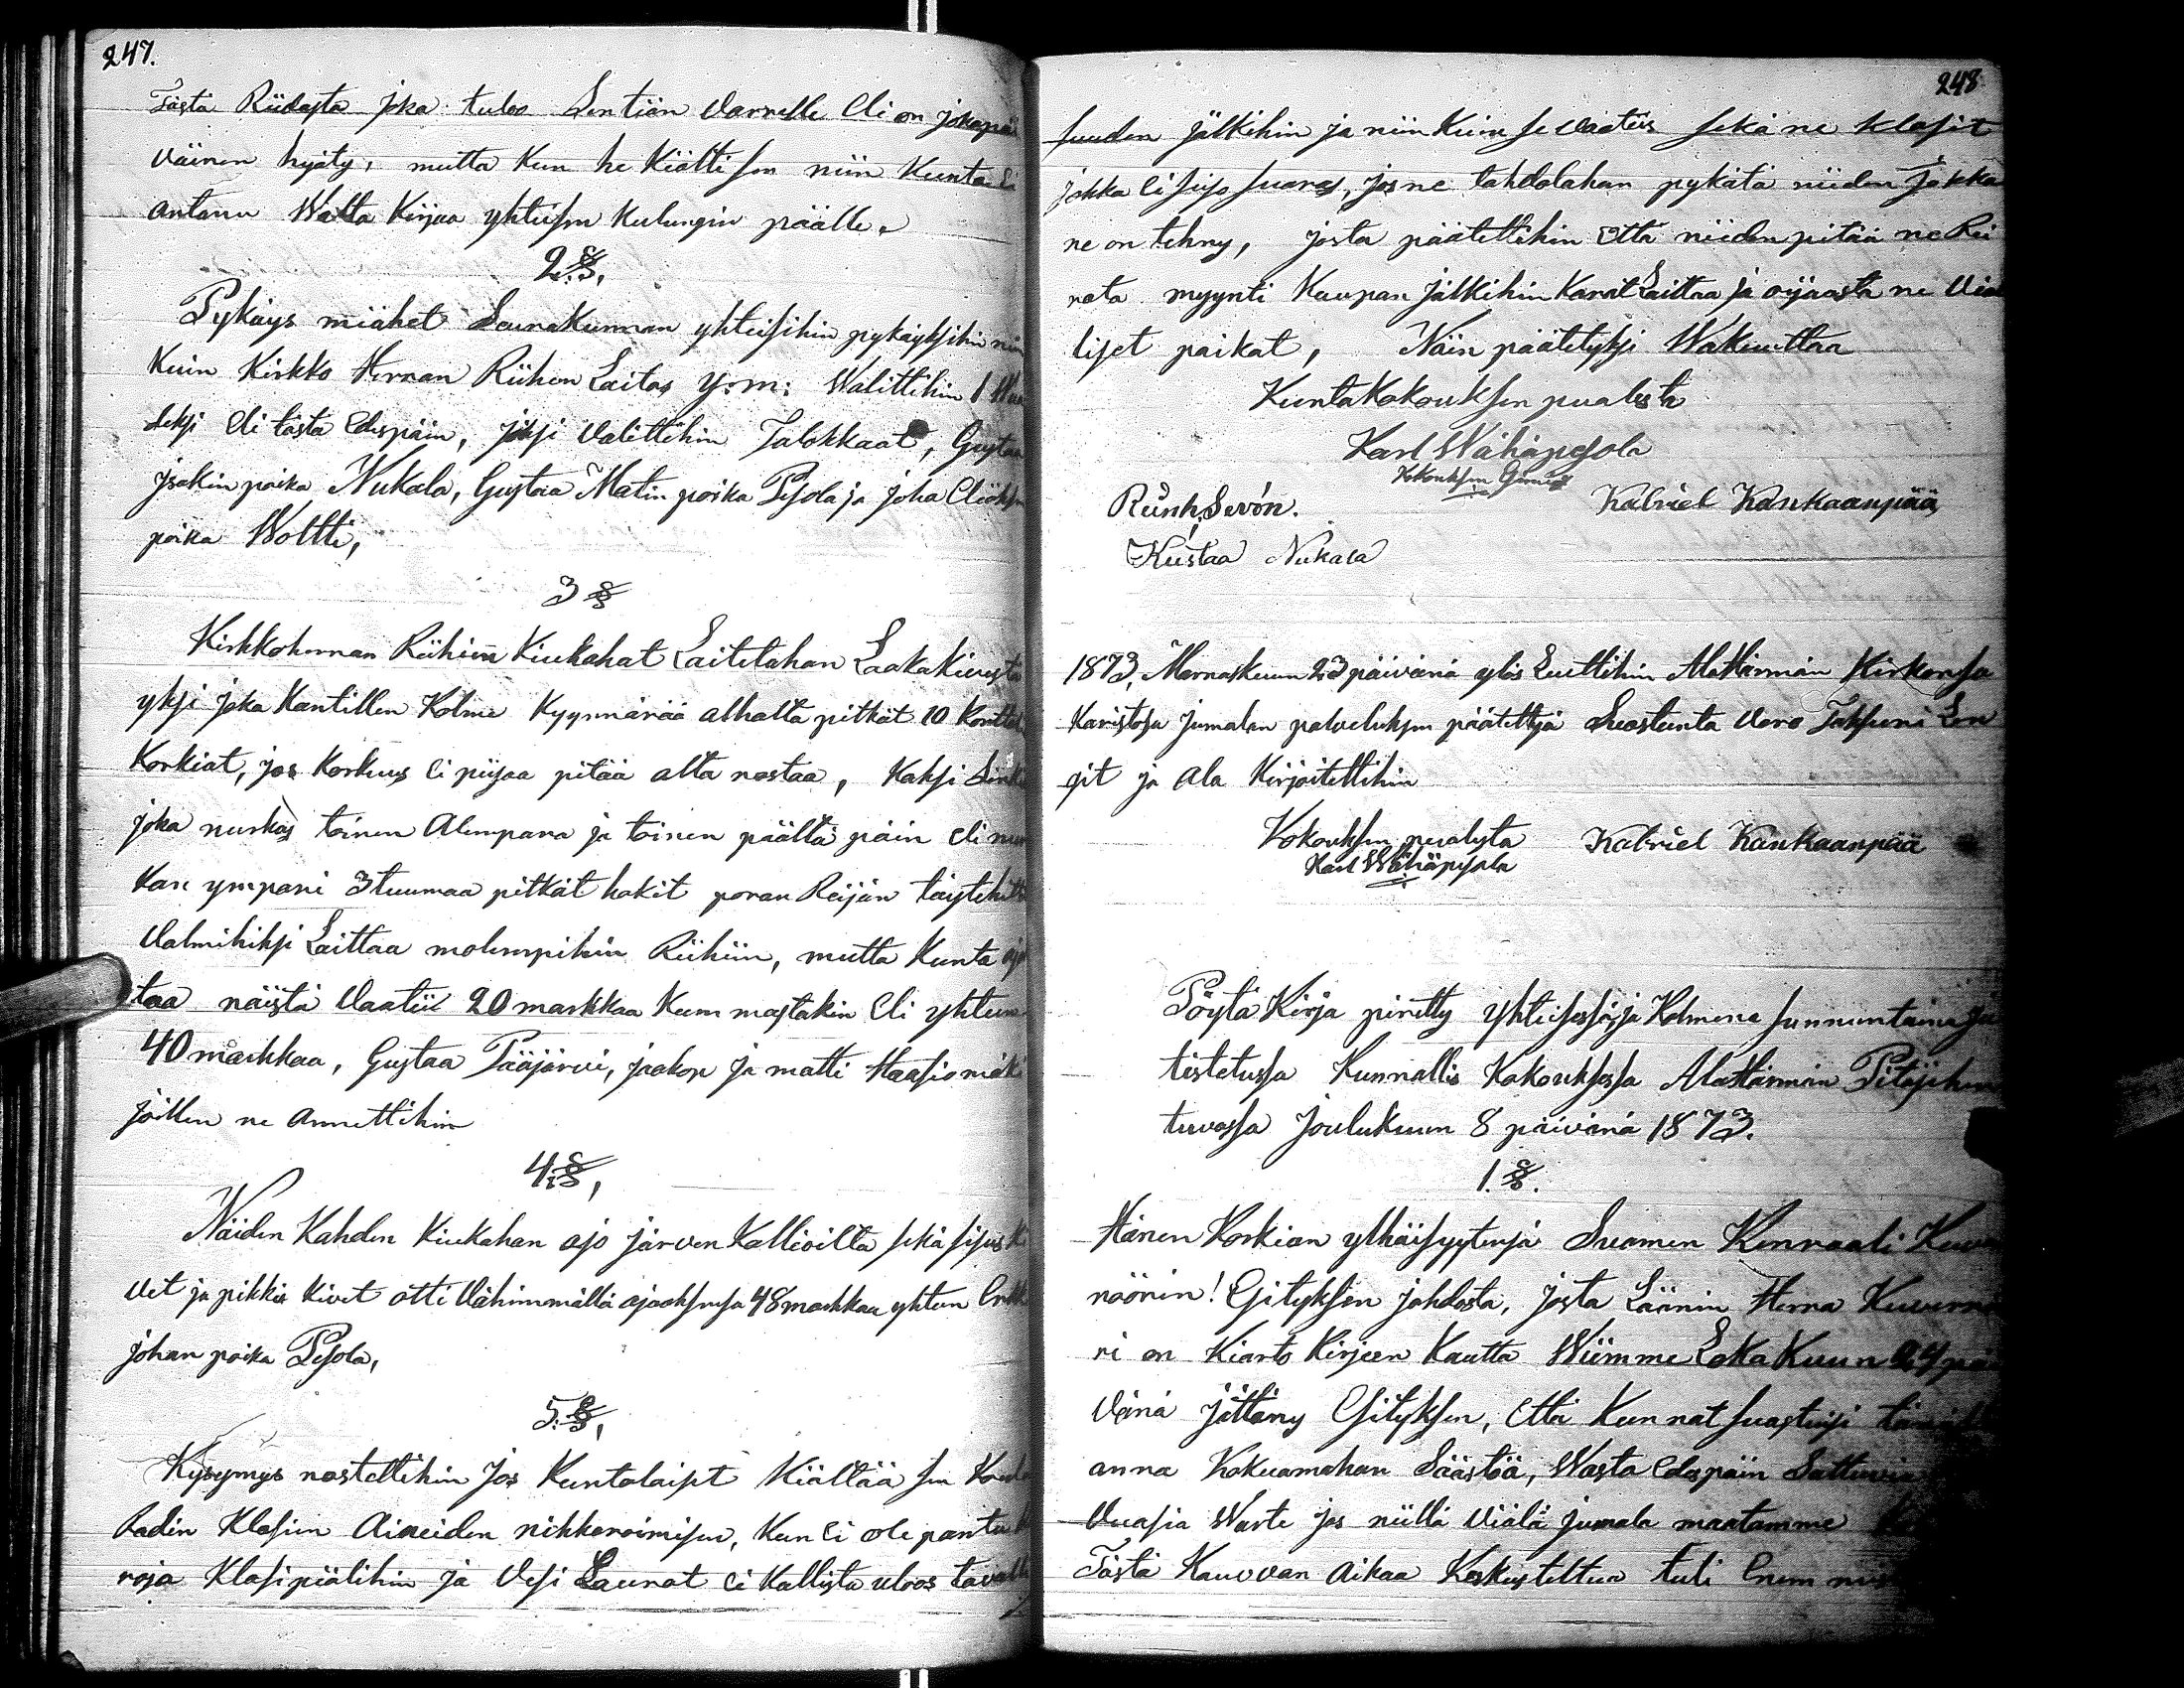 247.
Tästä Riidasta joka tuloo Sentiän Varralle Eli on jokapäi
väinen hyäty, mutta Kun he Kiälti sen niin Kunta Ei
antanu Walta Kirjaa yhteisen Kulungin päälle.
2. §,
Pykäys miähet Seurakunnan yhteisihin pykäyksihin niin
Kuin Kirkko Herran Riihen Laitos y: m: Walittihin 1
deksi Eli tästä Edespäin, joksi Valittihin Talokkaat, Gustaa
jsakin poika Nukala, Gustaa Matin poika Pesola ja Joha
poika Woltti,
3 §
Kirkkoherran Riihiin Kiukahat Laitetahan Laakakivestä
yksi joka Kantillen Kolme Kyynärää alhalta pitkät 10 Kortteli
Korkiat, jos Korkeus Ei piisaa pitää alta nostaa, Kaksi
joka nurkas toinen Alempana ja toinen päältä päin Eli nur
Kan ympäri 3 tuumaa pitkät hakit poran Reijän täytehittä
Valmihiksi Laittaa molempihin Riihiin, mutta Kunta aja
taa näistä Vaatii 20 markkaa Kummastakin Eli yhteen
40 markkaa, Gustaa Pääjärvi, jaakop ja matti Haasiomäki
joillen ne Annettihin
4. §,
Näiden Kahden Kiukahan ajo järven Kallioilta sekä sisus Ki
vet ja pikkii Kivet otti Vähimmällä ajaaksensa 48 markkaa yhteen
johan poika Pesola,
5. §,
Kysymys nostettihin Jos Kuntalaiset Kiältää sen
Radin Klasiin Aineiden nikkaroimisen, Kun Ei ole pantu
roja Klasipiälihin ja Vesi Launat Ei Kallista uloos
248
suuden jälkihin ja niin Kuin se Vaatiis sekä ne Klasit
jokka Ei siiso suaras, jos ne tahdotahan pykätä niiden jokka
ne on tehny, josta päätettihin Että niiden pitää ne
rata myynti Kaupan jälkihin Karat Laittaa ja
liset paikat, Näin päätetyksi Wakuuttaa
Kunta Kokouksen puolesta
Karl Wähäpesola
Kokouksen
Sevón. Kabriel Kankaanpää
Kustaa Nukala
1873, Marraskuun 23 päivänä ylös Luettihin Alahärmän Kirkonsa
Karistosa jumalan palveluksen päätettyä Suostunta Vero Taksueri Len
git ja Ala Kirjoitettihin
Kokouksen puolesta Kabriel Kankaanpää
Karl Wähäpesola
Pöytä Kirja piretty yhteisessä ja Kolmena sunnuntaina
tistetussa Kunnallis Kokouksessa Alahärmän Pitäjehen
tuvassa Joulukuun 8 päivänä 1873.
1. §.
Hänen Korkian ylhäisyytensä Suomen Kenraali Kuver
nöörin! Esityksen johdosta, josta Läänin Herra Kuvernö
ri on Kiärto Kirjeen Kautta Wiimme Loka Kuun 24 päi
vänä jättäny Esityksen, Että Kunnat suastuisi
anna Kokuamahan Säästöä, Wasta Edespäin
Vuasia Warte jos niillä Viälä jumala maatamme
Tästä Kauvvan Aikaa Keskusteltua tuli Enemmis